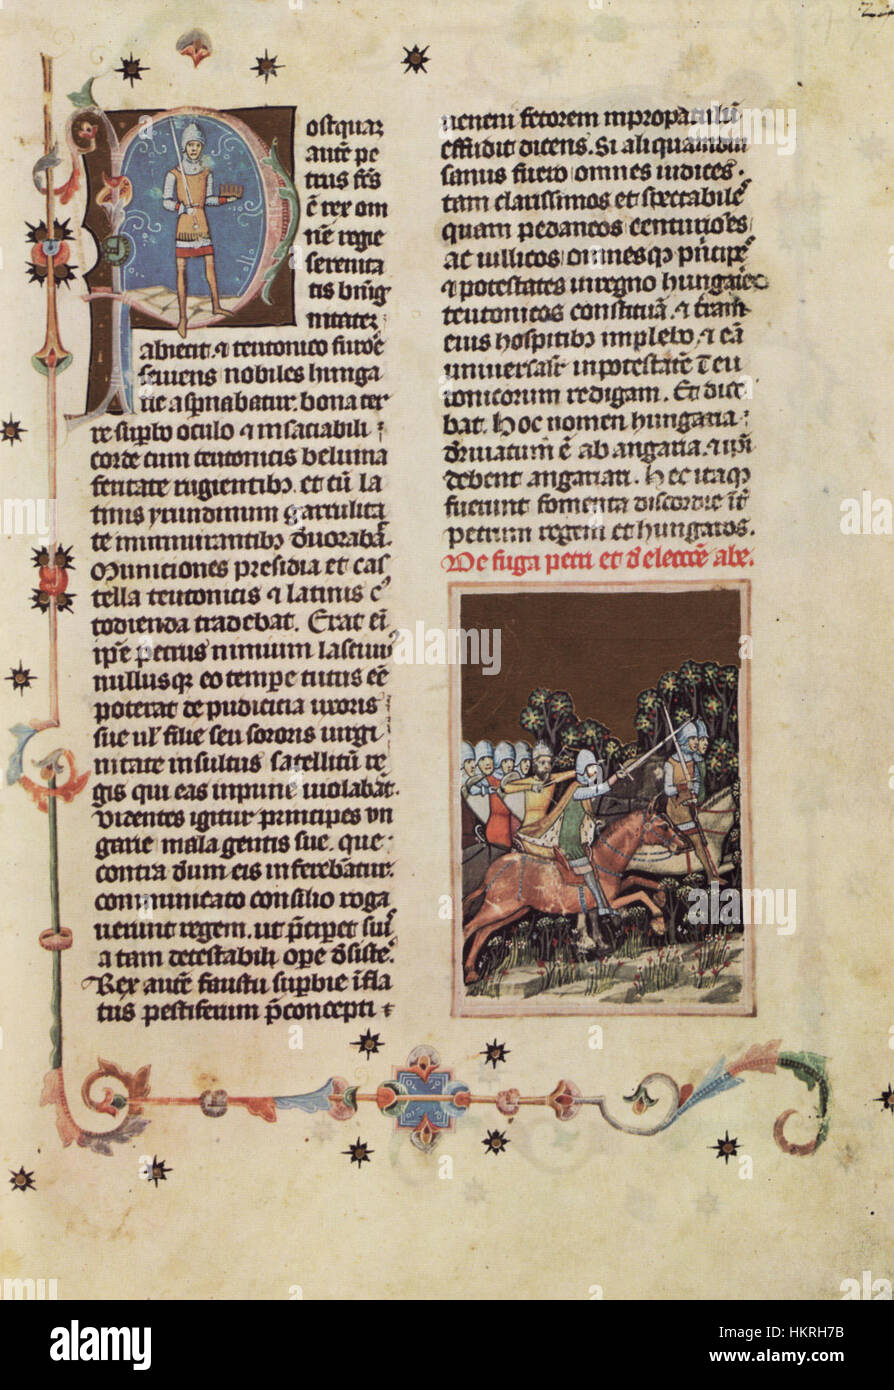 ostquaꝫ
autē pe
trus fc̄s
ē rex om
nē regie
serenita
tis bnīg
nitateꝫ
abiecit ⁊ teutonico furoꝛe
seuiens nobiles hunga
rie aspnabatur. bona ter
re supbo oculo ⁊ insaciabili
corde cum teutonicis beluina
feritate rugientibꝫ. et cū la
tinis yrundinum garrulita
te murmurantibꝫ deuorabāt.
Municiones presidia et cas
tella teutonicis ⁊ latinis
todienda tradebat. Erat eī
ipē petrus nimium lasciuꝰ
nullusqꝫ eo tempe tutus eē
poterat de pudicicia uxoris
sue ul̄ filie seu sororis uirgi
nitate insultus satellitū re
gis qui eas inpune uiolabāt.
Videntes igitur principes vn
garie mala gentis sue. que
contra deum eis inferebātur.
communicato consilio roga
uerunt regem. ut p̄cipet suis
a tam detestabili ope desistē.
Rex autē faustu supbie īfla
tus pestiferum p̄concepti
ueneni fetorem in propatulū
effudit dicens. Si aliquamdiu
sanus fuero omnes iudices
tam clarissimos et spectabiles
quam pedaneos centurioēs
ac uillicos omnesqꝫ p̄ncipes
⁊ potestates in regno hungarie
teutonicos constituā. ⁊ terrā
eius hospitibꝫ implebo. ⁊ eā
uniuersalr̄ in potestatē teu
tonicorum redigam. Et dice
bat. Hoc nomen hungaria
deriuatum ē ab angaria. ⁊ ipi
debent angariari. Hec itaqꝫ
fuerunt fomenta discordie īt
petrum regem et hungaros.
De fuga petri et de eleccōe abe.
alamy
Image ID: HKRH7B
www.alamy.com